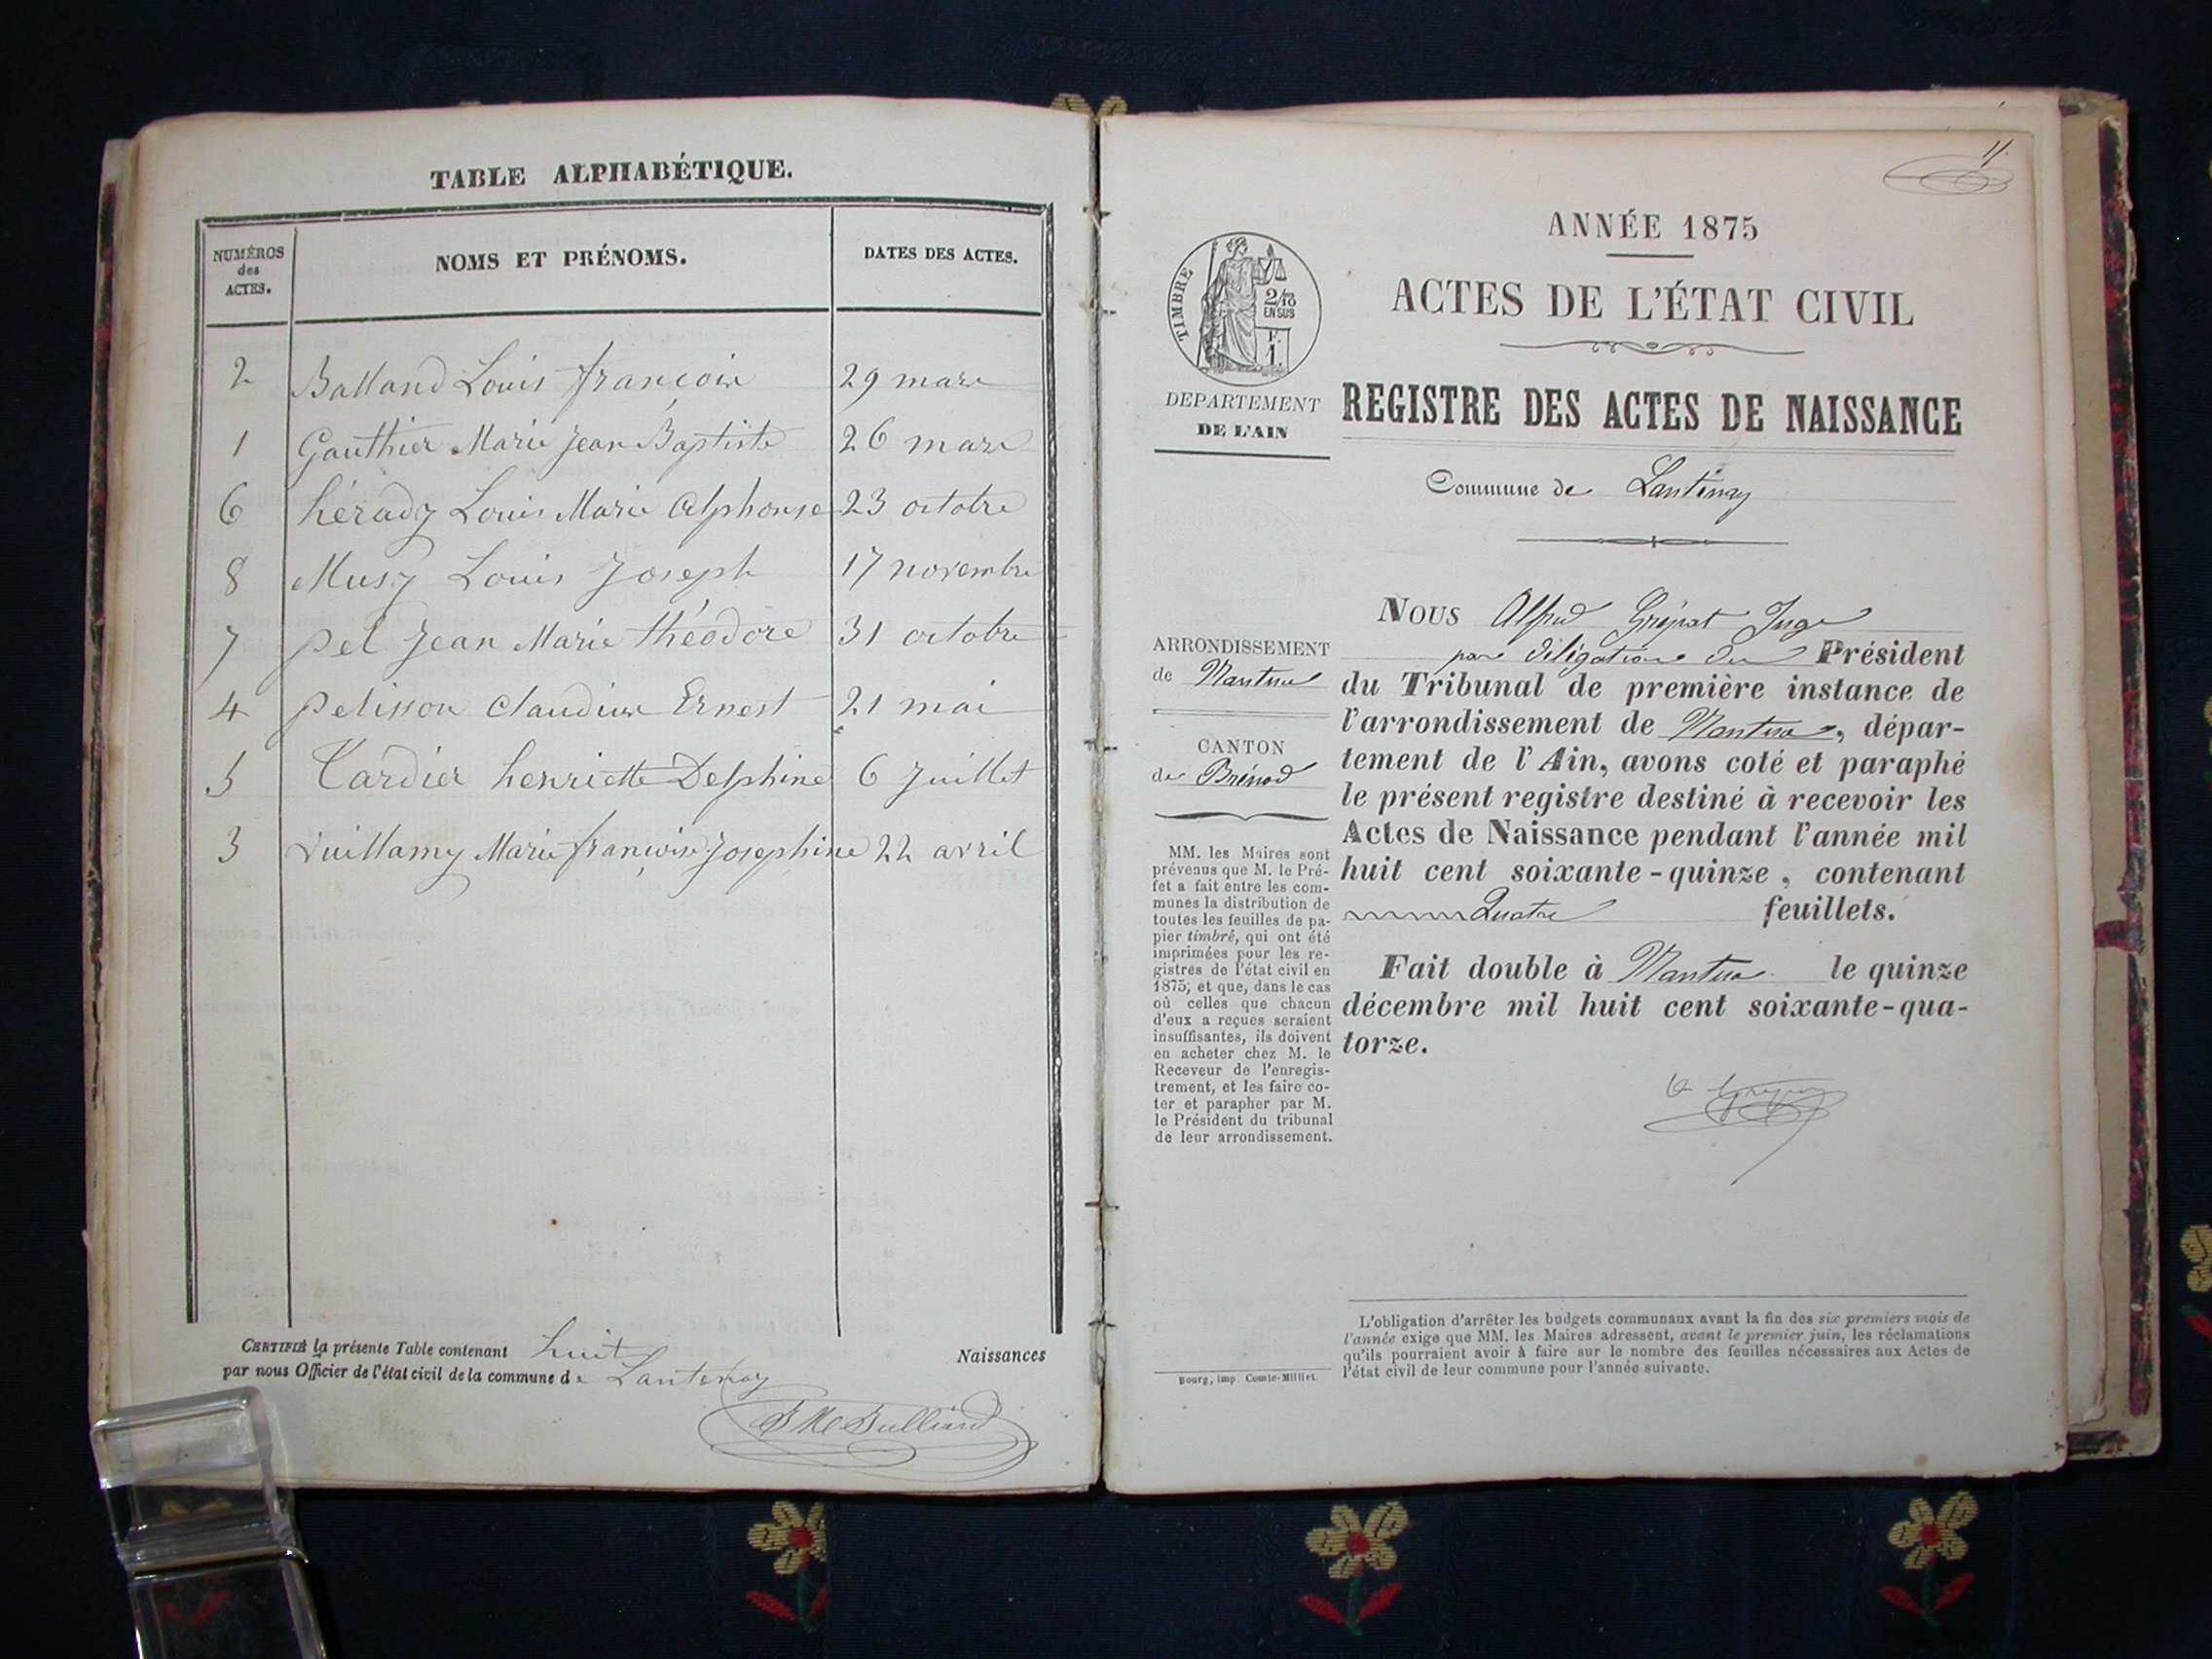 TABLE ALPHABÉTIQUE.
NUMÉROS
des
ACTES.
NOMS ET PRÉNOMS.
DATES DES ACTES.
2 Balland Louis françois 29 mars
1 Gauthier Marie Jean Baptiste 26 mars
6 hérady Louis Marie alphonse 23 octobre
8 Musy Louis Joseph 17 novembre
7 pel Jean Marie théodore 31 octobre
4 pelisson claudius Ernest 21 mai
5 Tardier henriette Delphine 6 Juillet
3 vuillamy Marie françoise Josephine 22 avril
CERTIFIÉ la présente Table contenant huit Naissances
par nous Officier de l'état civil de la commune de Lantenay
Bulliard
4
ANNÉE 1875
ACTES DE L'ÉTAT CIVIL
TIMBRE
2/10
EN SUS
F.
1.
DEPARTEMENT
DE L'AIN
REGISTRE DES ACTES DE NAISSANCE
Commune de Lantenay
ARRONDISSEMENT
de Nantua
CANTON
de Brénod
MM. les Maires sont
prévenus que M. le Pré-
fet a fait entre les com-
munes la distribution de
toutes les feuilles de pa-
pier timbré, qui ont été
imprimées pour les re-
gistres de l'état civil en
1875; et que, dans le cas
où celles que chacun
d'eux a reçues seraient
insuffisantes, ils doivent
en acheter chez M. le
Receveur de l'enregis-
trement, et les faire co-
ter et parapher par M.
le Président du tribunal
de leur arrondissement.
NOUS Alfred Juge
par délégation du Président
du Tribunal de première instance de
l'arrondissement de Nantua, dépar-
tement de l'Ain, avons coté et paraphé
le présent registre destiné à recevoir les
Actes de Naissance pendant l'année mil
huit cent soixante-quinze, contenant
Quatre feuillets.
Fait double à Nantua le quinze
décembre mil huit cent soixante-qua-
torze.
L'obligation d'arrêter les budgets communaux avant la fin des six premiers mois de
l'année exige que MM. les Maires adressent, avant le premier juin, les réclamations
qu'ils pourraient avoir à faire sur le nombre des feuilles nécessaires aux Actes de
l'état civil de leur commune pour l'année suivante.
Bourg, imp. Comte-Milliet.